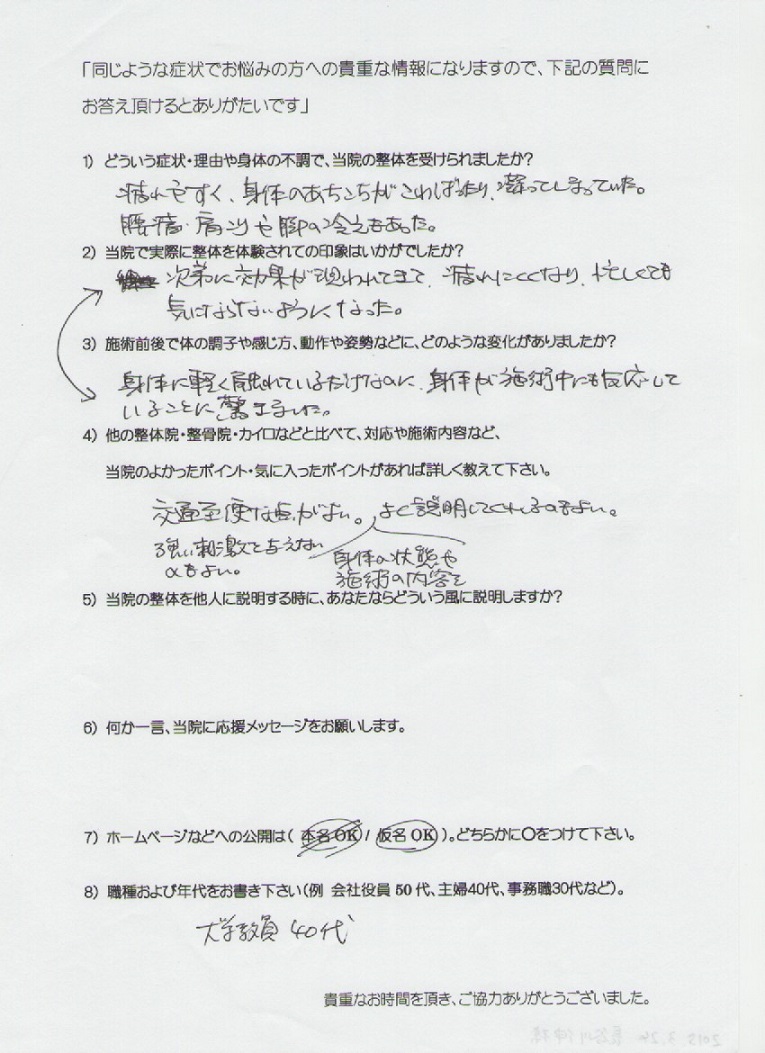 「同じような症状でお悩みの方への貴重な情報になりますので、下記の質問に
お答え頂けるとありがたいです」
1) どういう症状・理由や身体の不調で、当院の整体を受けられましたか?
疲れやすく、身体のあちこちがこわばったり、凝ってしまっていた。
腰痛・肩こりや脚の冷えもあった。
2) 当院で実際に整体を体験されての印象はいかがでしたか?
次第に効果が現われてきて、疲れにくくなり、忙しくても
気にならないようになった。
3) 施術前後で体の調子や感じ方、動作や姿勢などに、どのような変化がありましたか?
身体に軽く触れているだけなのに、身体が施術中にも反応して
いることに驚きました。
4) 他の整体院・整骨院・カイロなどと比べて、対応や施術内容など、
当院のよかったポイント・気に入ったポイントがあれば詳しく教えて下さい。
交通至便な点がよい。よく説明してくれるのもよい。
強い刺激を与えない
のもよい。
身体の状態や
施術の内容を
5) 当院の整体を他人に説明する時に、あなたならどういう風に説明しますか?
6) 何か一言、当院に応援メッセージをお願いします。
7) ホームページなどへの公開は( 本名OK / 仮名OK )。どちらかに○をつけて下さい。
8) 職種および年代をお書き下さい(例 会社役員50代、主婦40代、事務職30代など)。
大学教員 40代
貴重なお時間を頂き、ご協力ありがとうございました。